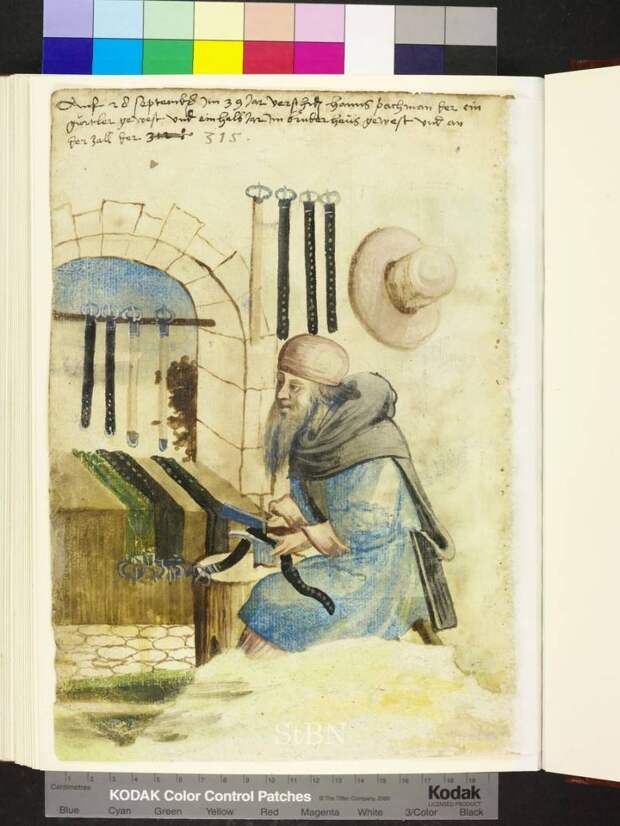 Auf 28 september Im 39 Jar verschid hanns pachman der ein
gürtler gewest vnd ein halb Jar Im bruderhaus gewest vnd an
der zall der 315.
StBN
1 2 3 4 5 6 7 8 9 10 11 12 13 14 15 16 17 18 19
Centimetres
KODAK Color Control Patches © The Tiffen Company, 2000 Kodak
LICENSED PRODUCT
Blue Cyan Green Yellow Red Magenta White 3/Color Black